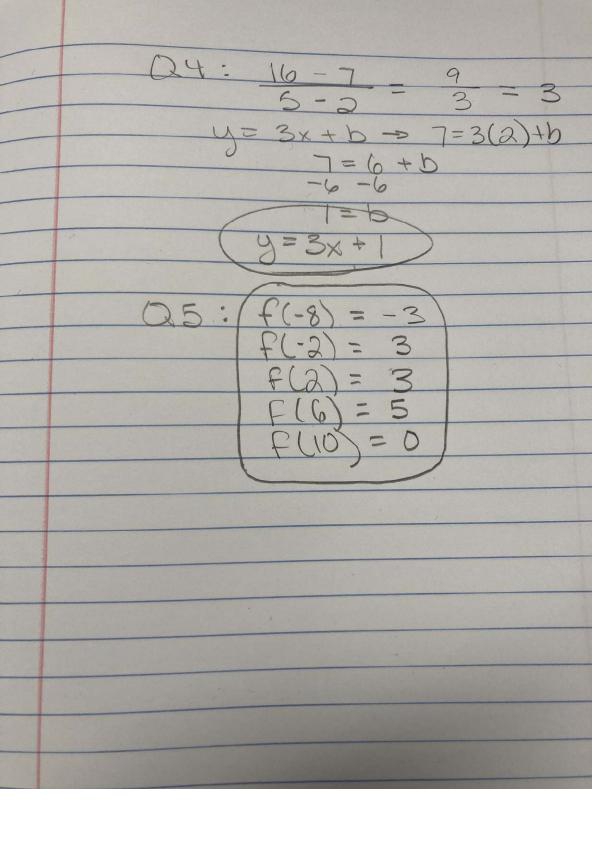 Q4: 16 - 7 / 5 - 2 = 9 / 3 = 3
y = 3x + b → 7 = 3(2) + b
7 = 6 + b
-6 -6
1 = b
y = 3x + 1
Q5: f(-8) = -3
f(-2) = 3
f(2) = 3
f(6) = 5
f(10) = 0